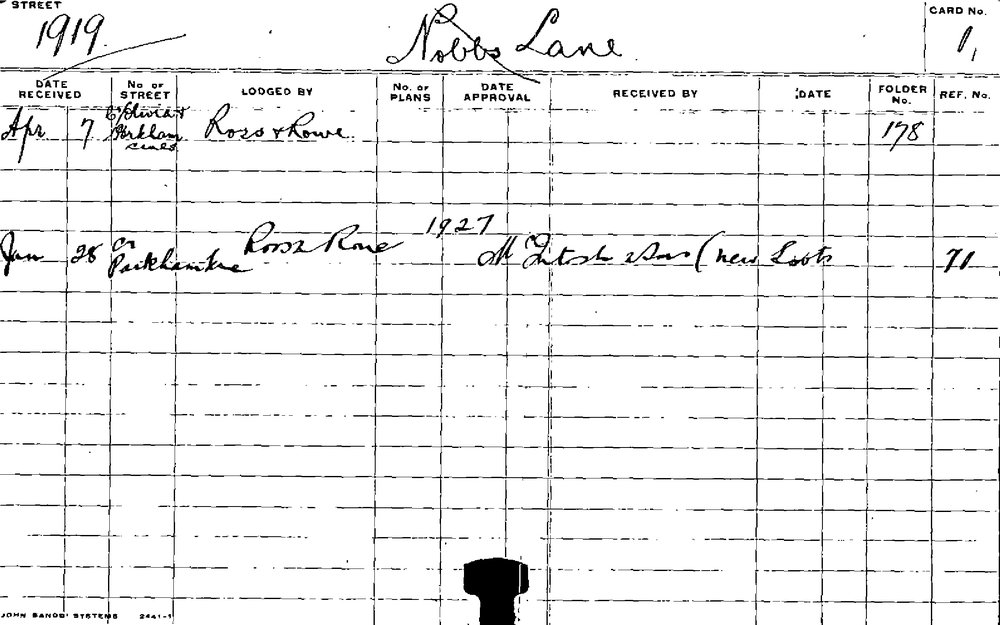 STREET
1919.
Nobbs Lane
CARD No.
1,
DATE RECEIVED
No OF STREET
LODGED BY
No. OF PLANS
DATE APPROVAL
RECEIVED BY
DATE
FOLDER No.
REF. No.
Apr 7 Cr Olivia & Parkham Lanes Ross & Rowe 178
1927
Jan 28 Cr Parkham Lane Ross & Rowe McIntosh & Sons (new Lots 71
JOHN SANDS' SYSTEMS 2441-1